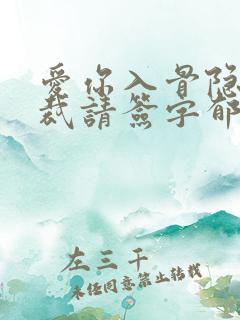 愛你入骨隐
裁請簽字郁
左三千
未经同意禁止转载